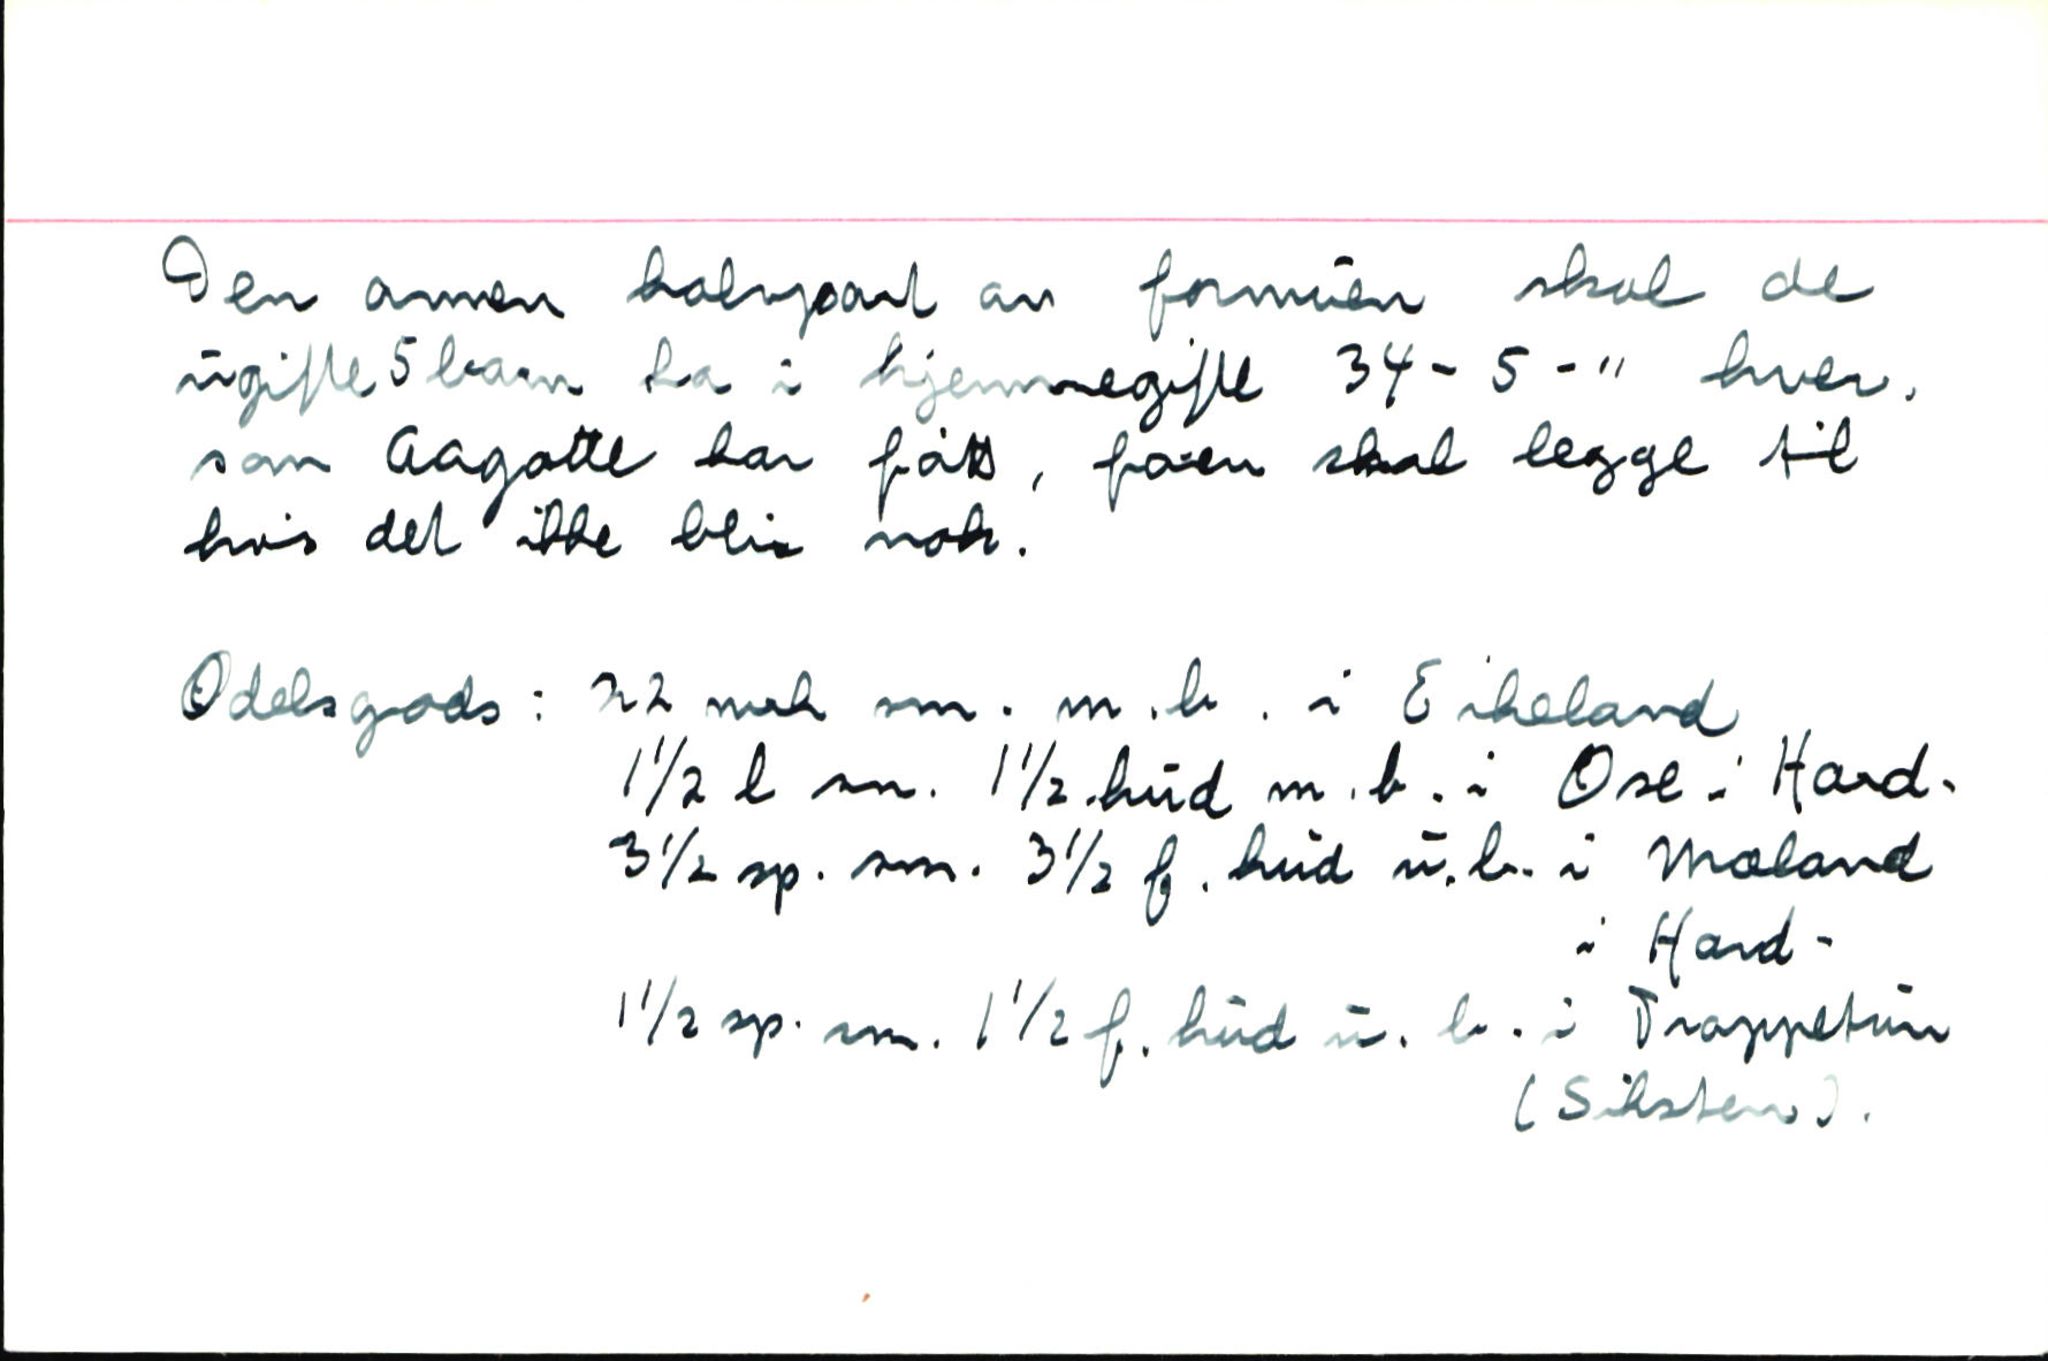 Den annen halvpart av formuen skal de
ugifte 5 barn ha i hjemmegifte 34 - 5 - " hver.
som Aagotte har fått, faren skal legge til
hvis det ikke blir nok.
Odelsgods: 22 mrk sm. m.b. i Eikeland
1 1/2 l sm. 1 1/2 hud m.b. i Ose i Hard.
3 1/2 sp. sm. 3 1/2 f. hud u.b. i Mæland
i Hard.
1 1/2 sp. sm. 1 1/2 f. hud u.b. i Trappetun
(Siksten).